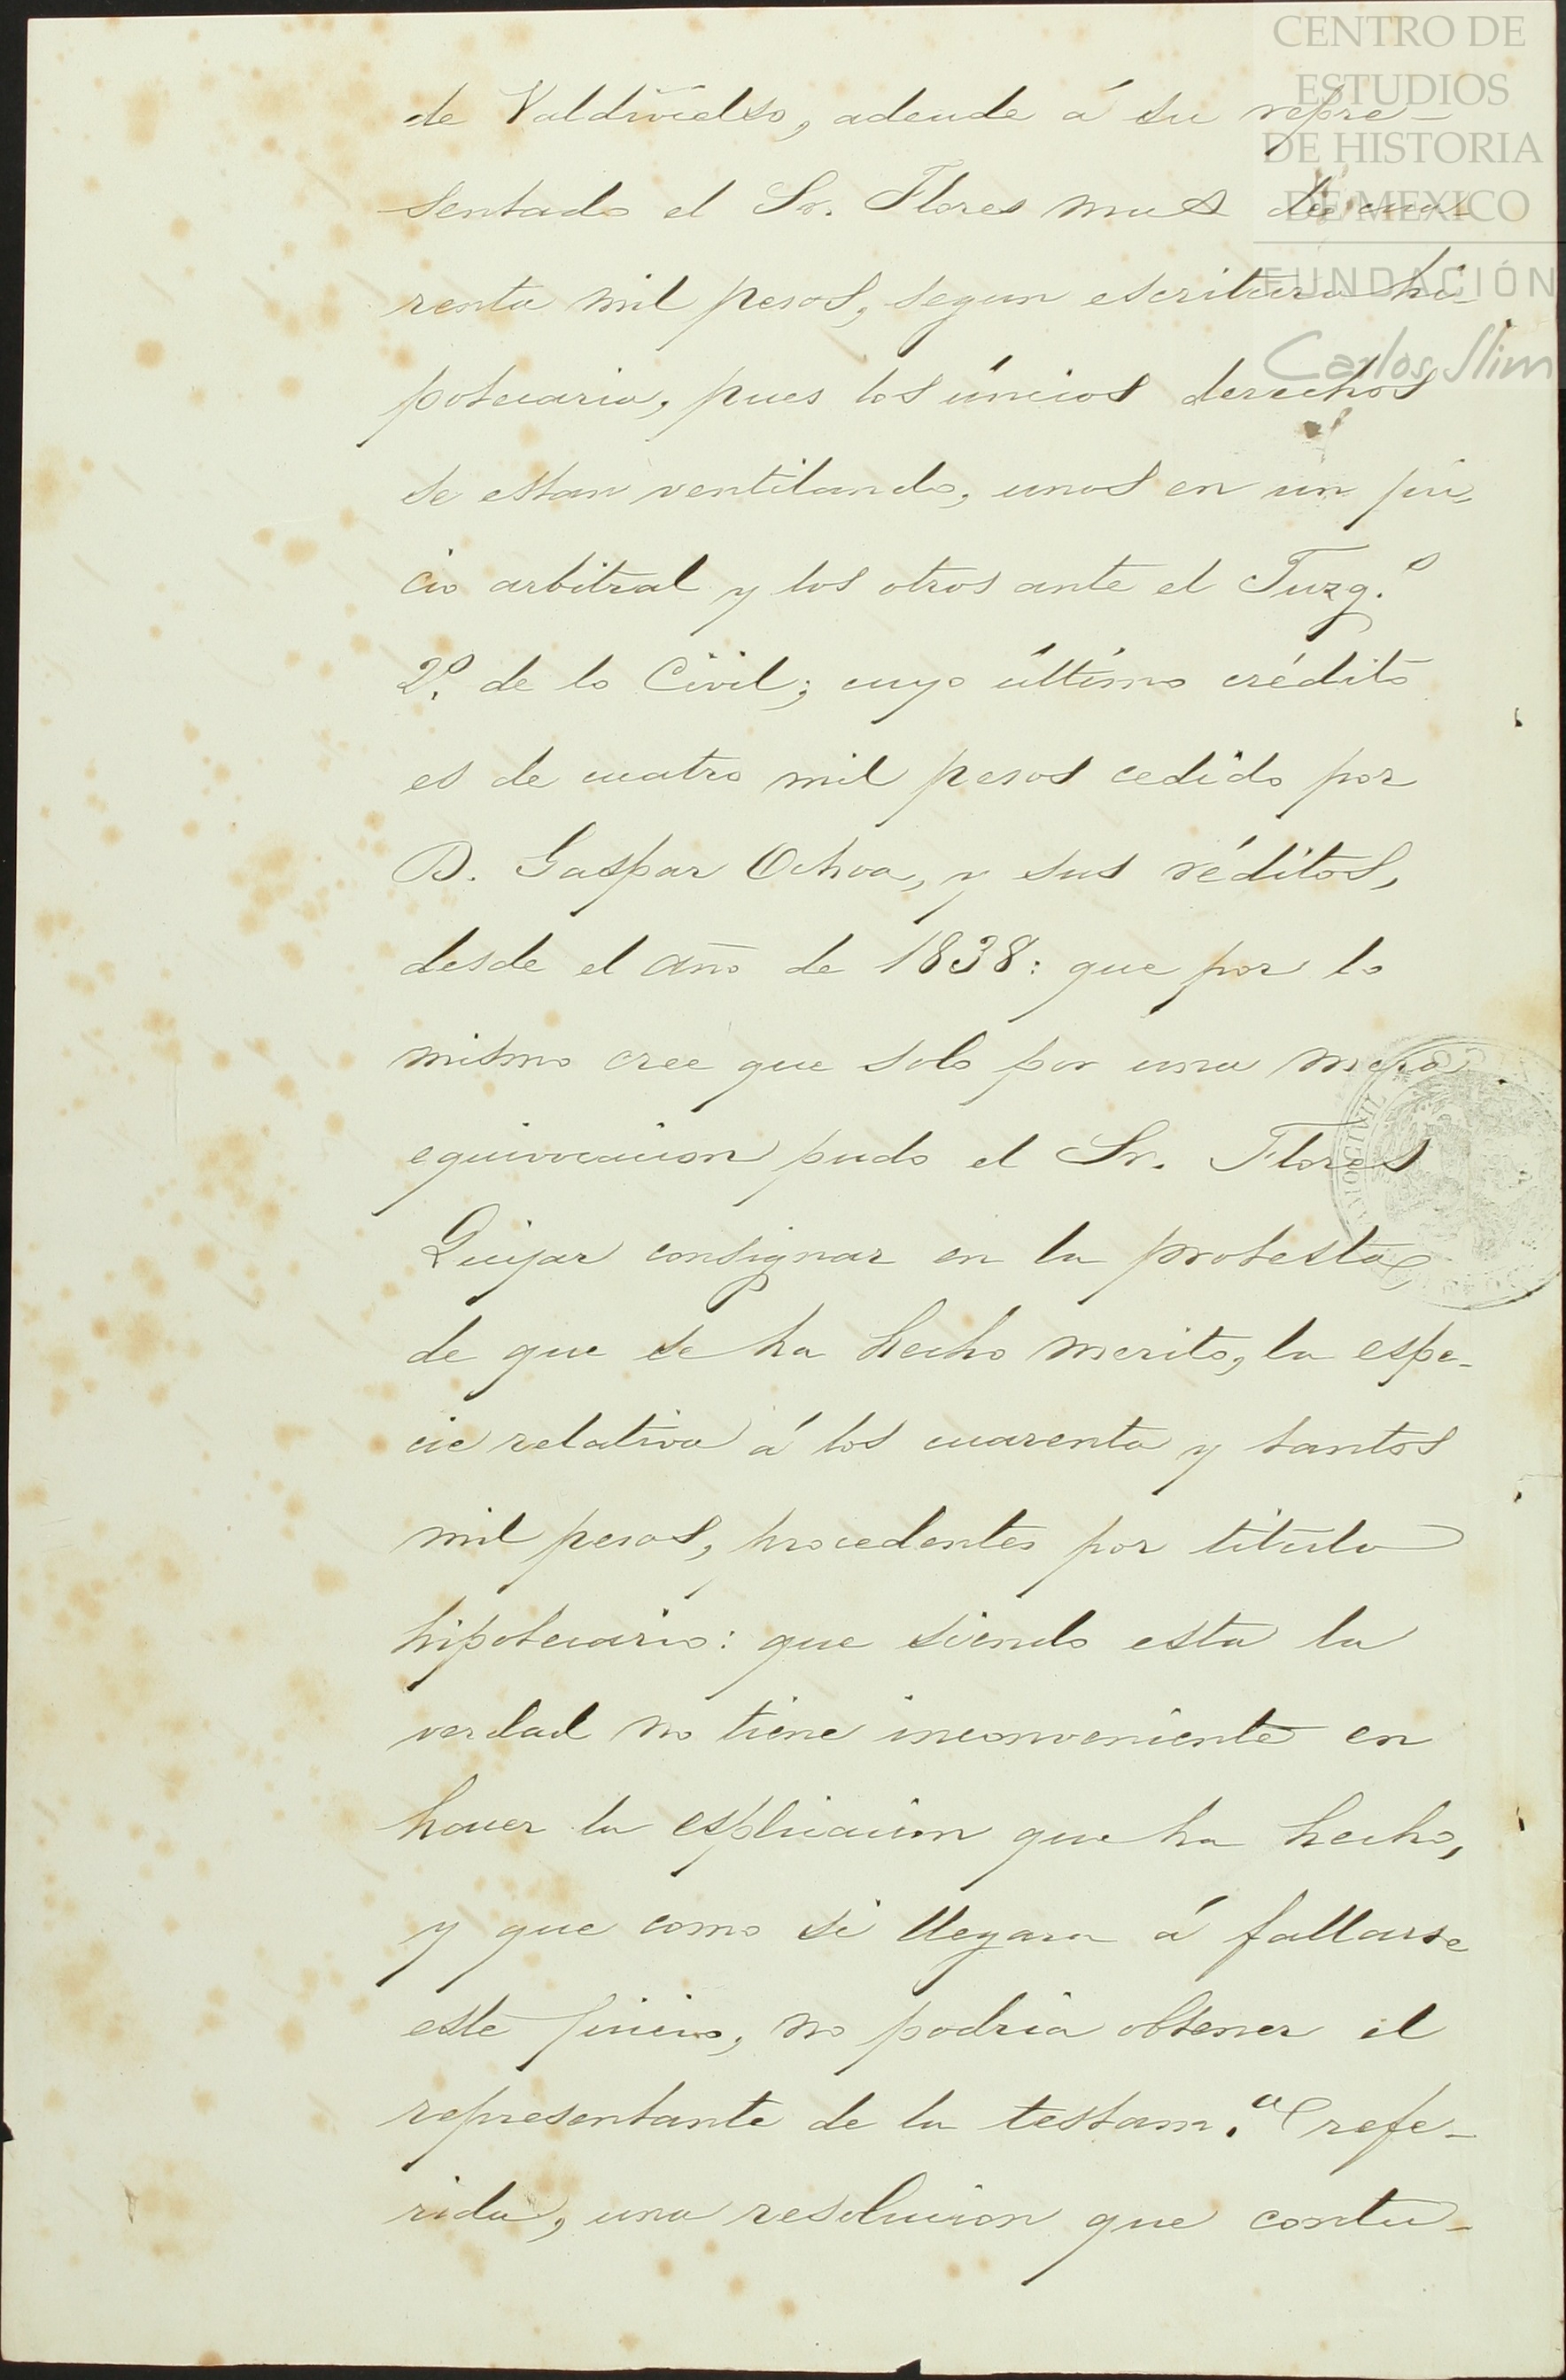 CENTRO DE
ESTUDIOS
DE HISTORIA
DE MEXICO
FUNDACIÓN
Carlos Slim
de Valdivielso, adeude á su repre-
sentado el Sr. Flores mas de cua-
renta mil pesos, segun escritura hi-
potecaria, pues los únicos derechos
se estan ventilando, unos en un jui-
cio arbitral y los otros ante el Juzg.º
2º. de lo Civil; cuyo último crédito
es de cuatro mil pesos cedido por
D. Gaspar Ochoa, y sus réditos,
desde el año de 1838: que por lo
mismo cree que solo por una mera
equivocacion pudo el Sr. Flores
Quijar consignar en la protesta,
de que se ha hecho merito, la espe-
cie relativa á los cuarenta y tantos
mil pesos, procedentes por titulo
hipotecario: que siendo esta la
verdad no tiene inconveniente en
hacer la esplicacion que ha hecho,
y que como si llegara á fallarse
este juicio, no podria obtener el
representante de la testam.ª refe-
rida, una resolucion que contu-